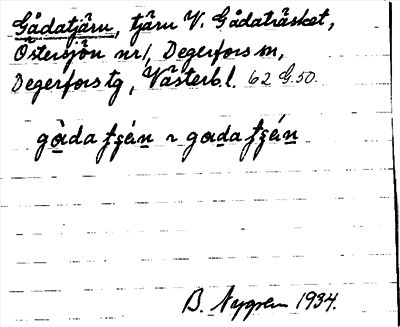 Gådatjärn, tjärn V. Gådaträsket,
Östersjön nr 1, Degerfors sn,
Degerfors tg, Västerb. l. 62 G. 50.
B. Nygren 1934.